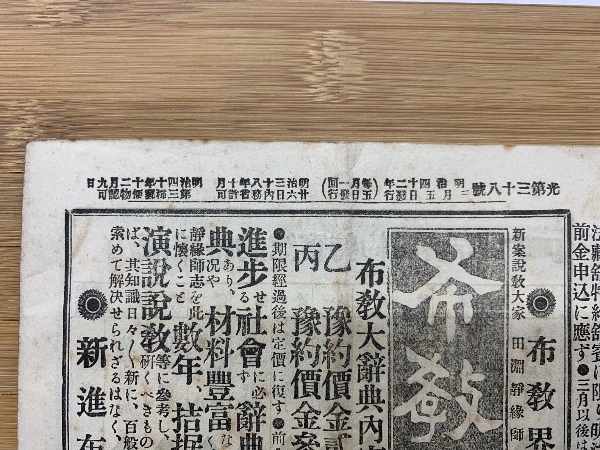 光第三十八號
明治四十二年三月五日發行
(毎月一回五日發行)
明治三十八年十月廿六日内務省許可
明治四十年十二月九日第三種郵便物認可
前金申込に應ず●三月以後は
新案説教大家 田淵靜緣師
◉布教界
布教
布教大辭典内
乙 豫約價金貳
丙 豫約價金參
●期限經過後は定價に復す●前
進歩せる社會に必ず
辭典
あり、況や材料豐富な
靜緣師志を此に懷くこと數年拮据
演說說教等に參考し、研くべきもの
ば、其知識日々に新に、百般
索めて解決せられざるはなく、
◉新進布